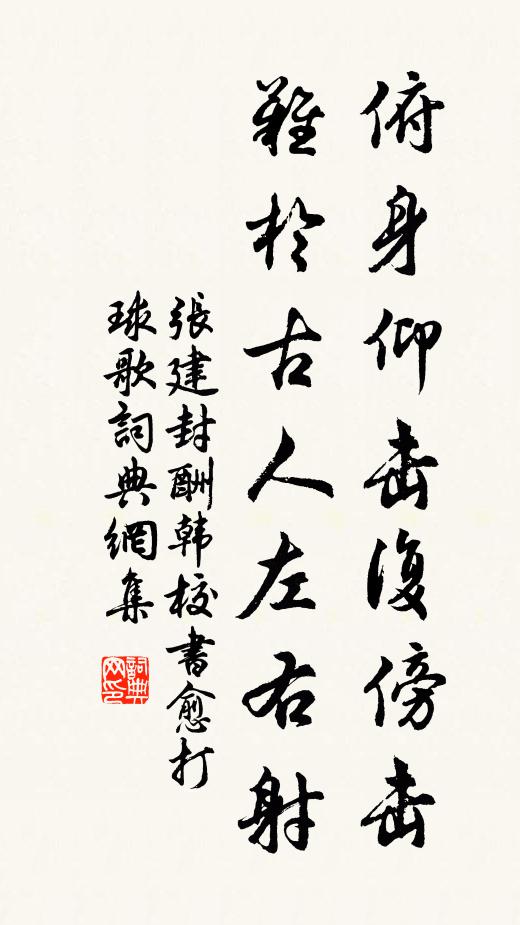 俯身仰击復傍击
難於古人左右射
張建封酬韩校書愈打
球歌詞典網集
詞典网印